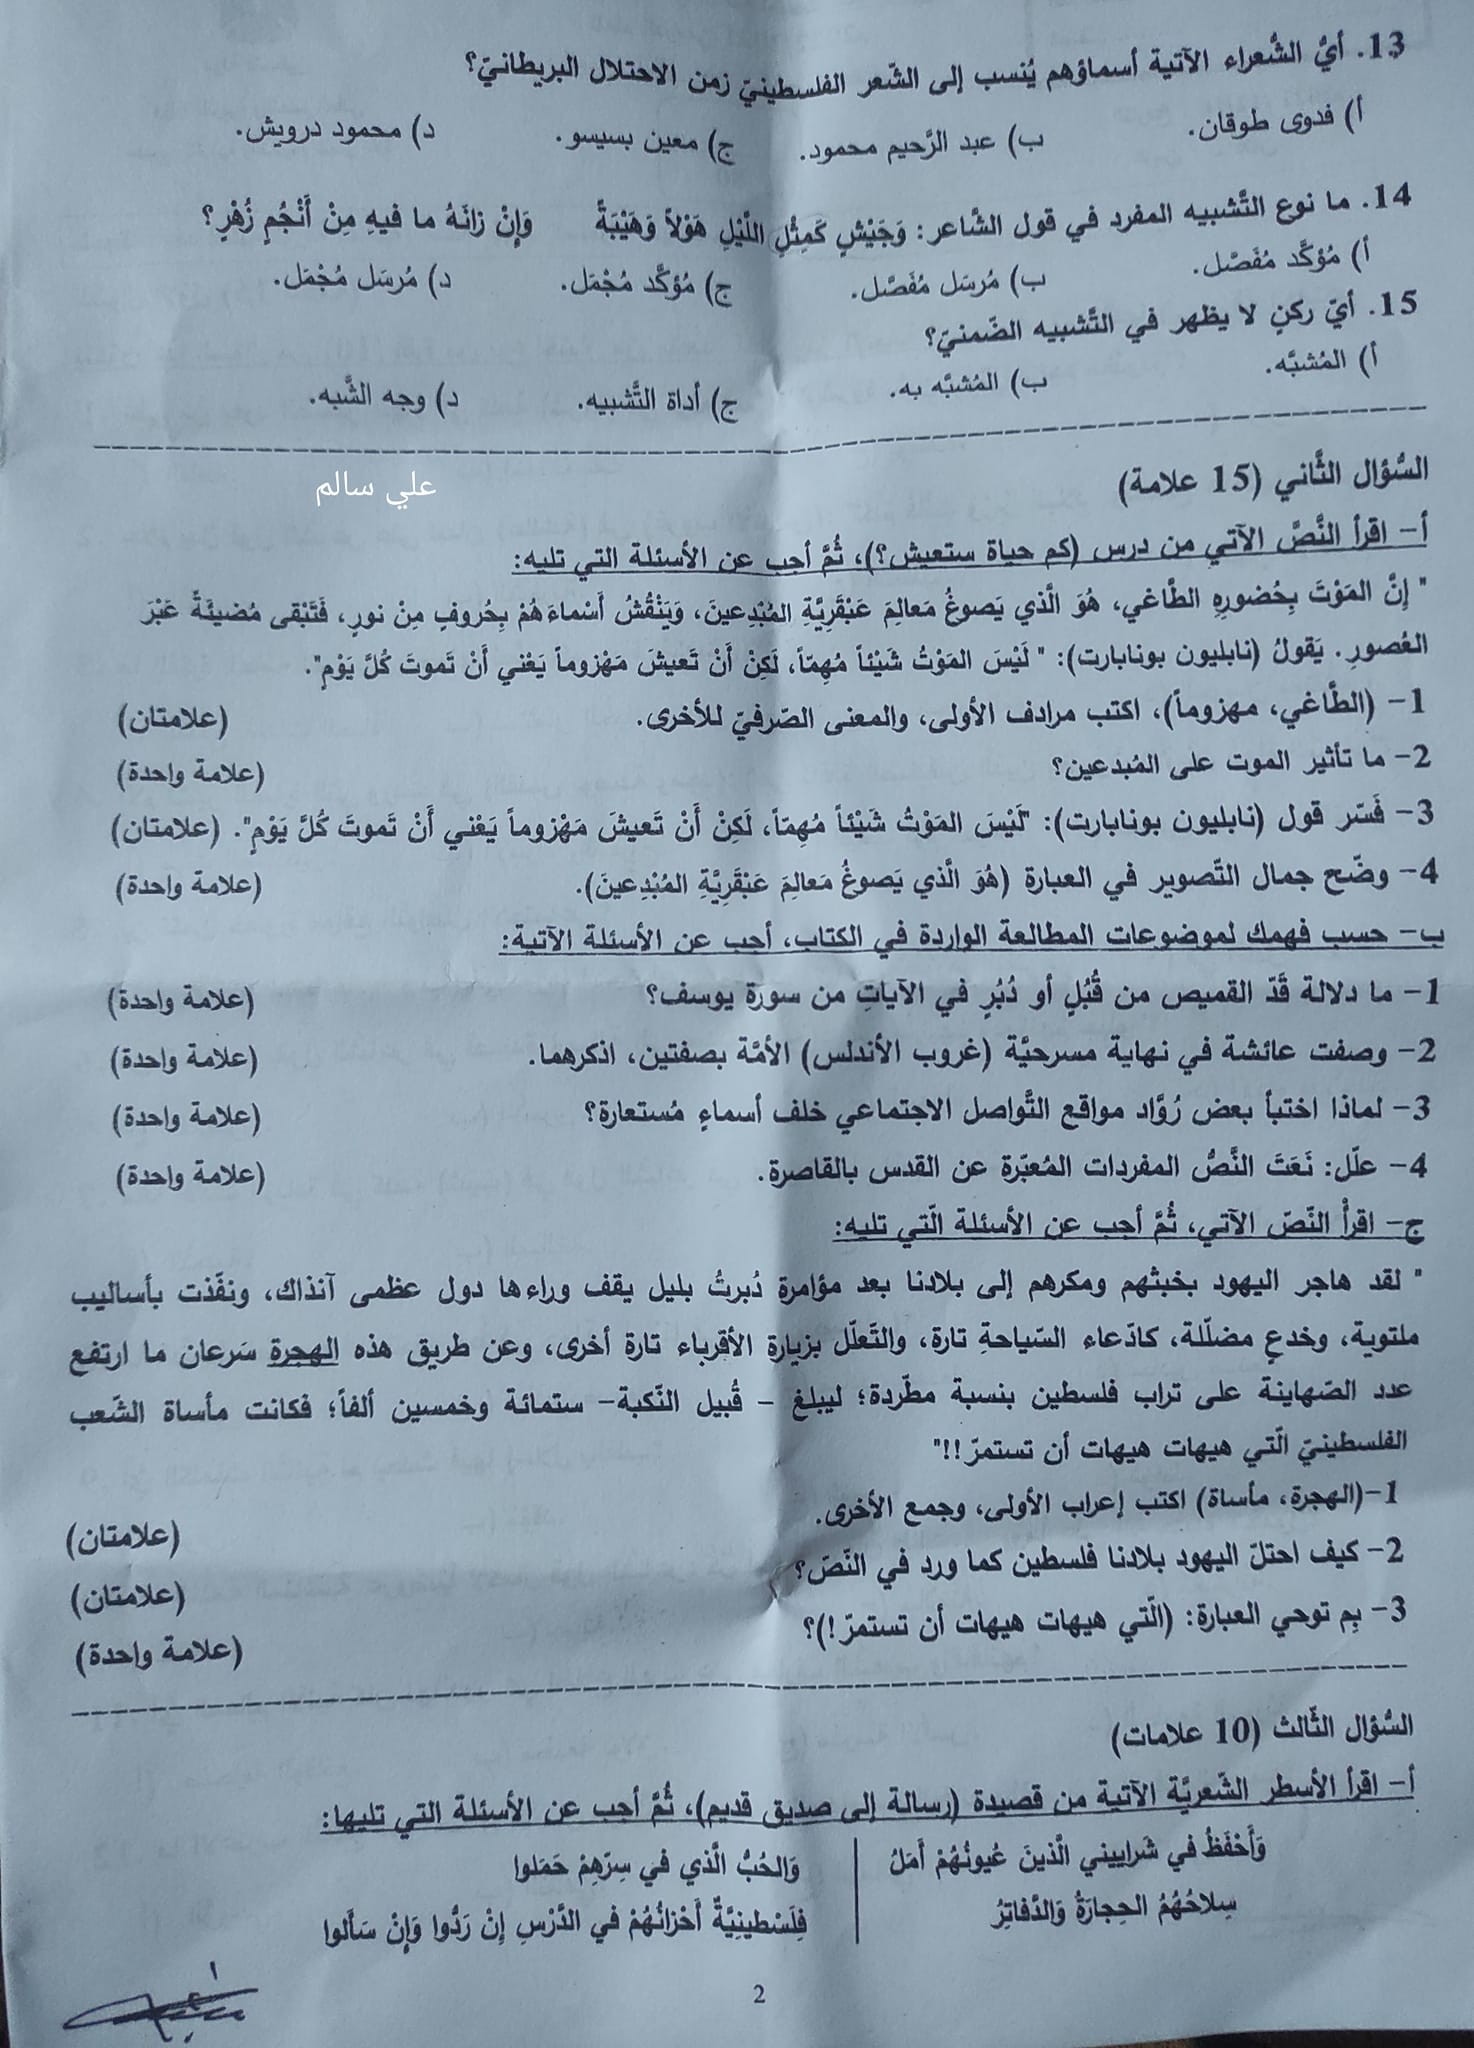 13. أيُّ الشُّعراء الآتية أسماؤهم يُنسب إلى الشّعر الفلسطينيّ زمن الاحتلال البريطانيّ؟
أ) فدوى طوقان. ب) عبد الرَّحيم محمود. ج) معين بسيسو. د) محمود درويش.
14. ما نوع التَّشبيه المفرد في قول الشَّاعر: وَجَيْشٍ كَمِثْلِ اللَّيْلِ هَوْلاً وَهَيْبَةً وَإِنْ زانَهُ ما فيهِ مِنْ أَنْجُمٍ زُهْرٍ؟
أ) مُؤكَّد مُفَصَّل. ب) مُرسَل مُفَصَّل. ج) مُؤكَّد مُجْمَل. د) مُرسَل مُجْمَل.
15. أيّ ركنٍ لا يظهر في التَّشبيه الضّمنيّ؟
أ) المُشبَّه. ب) المُشبَّه به. ج) أداة التَّشبيه. د) وجه الشَّبه.
السُّؤال الثَّاني (15 علامة)
علي سالم
أ- اقرأ النَّصَّ الآتي من درس (كم حياة ستعيش؟)، ثُمَّ أجب عن الأسئلة التي تليه:
" إِنَّ المَوْتَ بِحُضورِهِ الطَّاغي، هُوَ الَّذي يَصوغُ مَعالِمَ عَبْقَرِيَّةِ المُبْدِعينَ، وَيَنْقُشُ أَسْماءَهُمْ بِحُروفٍ مِنْ نورٍ، فَتَبْقى مُضيئَةً عَبْرَ
العُصورِ. يَقولُ (نابليون بونابارت): " لَيْسَ المَوْتُ شَيْئاً مُهِمّاً، لَكِنْ أَنْ تَعيشَ مَهْزوماً يَعْني أَنْ تَموتَ كُلَّ يَوْمٍ".
1- (الطَّاغي، مهزوماً)، اكتب مرادف الأولى، والمعنى الصّرفيّ للأخرى. (علامتان)
2- ما تأثير الموت على المُبدعين؟ (علامة واحدة)
3- فَسّر قول (نابليون بونابارت): "لَيْسَ المَوْتُ شَيْئاً مُهِمّاً، لَكِنْ أَنْ تَعيشَ مَهْزوماً يَعْني أَنْ تَموتَ كُلَّ يَوْمٍ". (علامتان)
4- وضّح جمال التّصوير في العبارة (هُوَ الَّذي يَصوغُ مَعالِمَ عَبْقَرِيَّةِ المُبْدِعينَ). (علامة واحدة)
ب- حسب فهمك لموضوعات المطالعة الواردة في الكتاب، أجب عن الأسئلة الآتية:
1- ما دلالة قَدّ القميص من قُبُلٍ أو دُبُرٍ في الآياتِ من سورة يوسف؟ (علامة واحدة)
2- وصفت عائشة في نهاية مسرحيَّة (غروب الأندلس) الأمَّة بصفتين، اذكرهما. (علامة واحدة)
3- لماذا اختبأ بعض رُوَّاد مواقع التَّواصل الاجتماعي خلف أسماءٍ مُستعارة؟ (علامة واحدة)
4- علّل: نَعَتَ النَّصُّ المفردات المُعبّرة عن القدس بالقاصرة. (علامة واحدة)
ج- اقرأْ النّصّ الآتي، ثُمَّ أجب عن الأسئلة الّتي تليه:
" لقد هاجر اليهود بخبثهم ومكرهم إلى بلادنا بعد مؤامرة دُبرتُ بليل يقف وراءها دول عظمى آنذاك، ونفّذت بأساليب
ملتوية، وخدعٍ مضلّلة، كادّعاء السّياحةِ تارة، والتّعلّل بزيارة الأقرباء تارة أخرى، وعن طريق هذه الهجرة سَرعان ما ارتفع
عدد الصّهاينة على تراب فلسطين بنسبة مطّردة؛ ليبلغ - قُبيل النّكبة- ستمائة وخمسين ألفاً؛ فكانت مأساة الشّعب
الفلسطينيّ الّتي هيهات هيهات أن تستمرّ!!"
1-(الهجرة، مأساة) اكتب إعراب الأولى، وجمع الأخرى. (علامتان)
2- كيف احتلّ اليهود بلادنا فلسطين كما ورد في النّصّ؟ (علامتان)
3- بِم توحي العبارة: (الّتي هيهات هيهات أن تستمرّ!)؟ (علامة واحدة)
السُّؤال الثّالث (10 علامات)
أ- اقرأ الأسطر الشّعريَّة الآتية من قصيدة (رسالة إلى صديق قديم)، ثُمَّ أجب عن الأسئلة التي تليها:
وَأَحْفَظُ في شَراييني الَّذينَ عُيونُهُمْ أَمَلُ وَالحُبُّ الَّذي في سِرِّهِمْ حَمَلوا
سِلاحُهُمُ الحِجارَةُ وَالدَّفاتِرُ فِلَسْطينِيَّةٌ أَحْزانُهُمْ في الدَّرْسِ إِنْ رَدُّوا وَإِنْ سَأَلوا
2